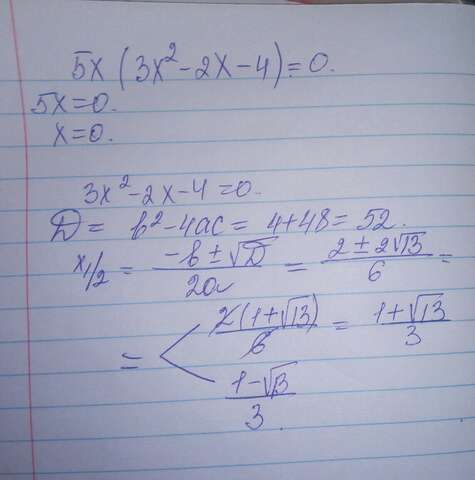 5x (3x² - 2x - 4) = 0.
5x = 0.
x = 0.
3x² - 2x - 4 = 0.
D = b² - 4ac = 4 + 48 = 52.
x₁/₂ = (-b ± √D)/(2a) = (2 ± 2√13)/6 =
= < 2(1 + √13)/6 = (1 + √13)/3
(1 - √13)/3.